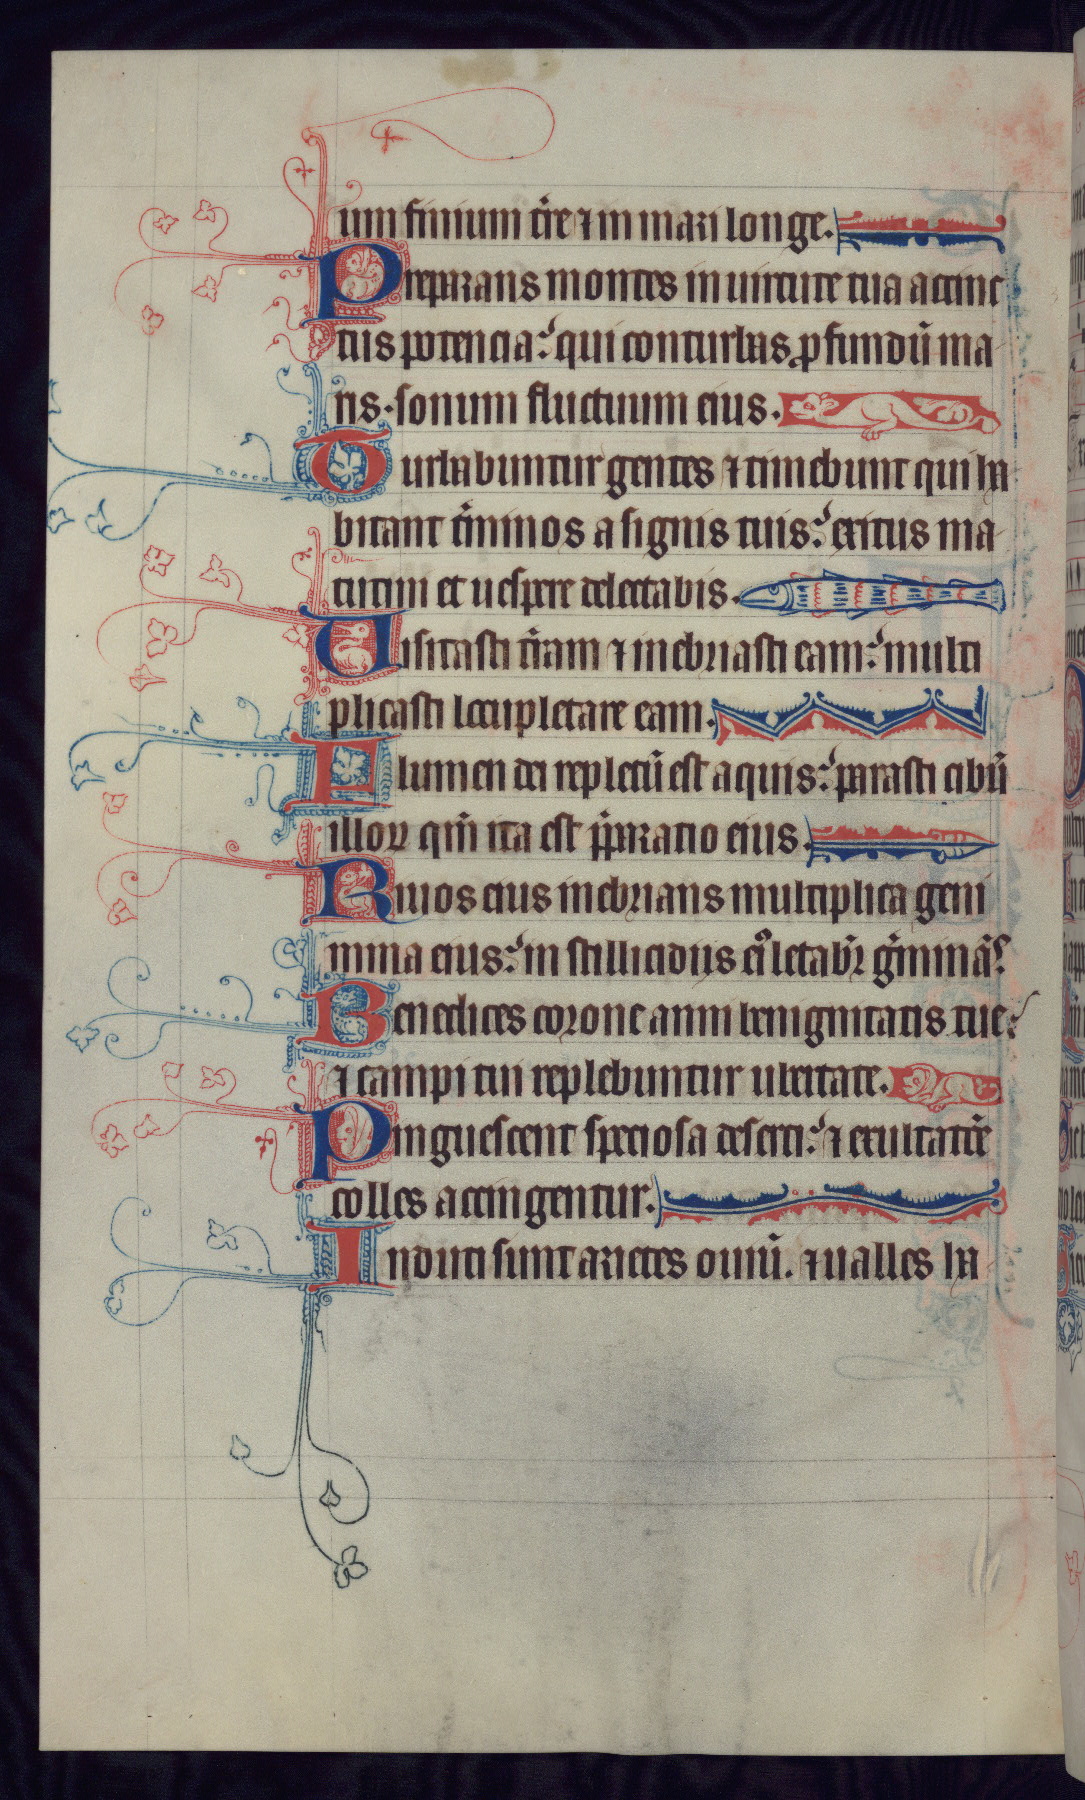 um finium t̄re ⁊ in mari longe.
Preparans montes in uirtute tua accinc
tus potencia: qui conturbas ꝓfundū ma
ris. sonum fluctuum eius.
Turbabuntur gentes ⁊ timebunt qui ha
bitant t̄minos a signis tuis: exitus ma
tutini et uespere delectabis.
Uisitasti t̄ram ⁊ inebriasti eam: multi
plicasti locupletare eam.
Flumen dei repletū est aquis: parasti cibū
illoꝝ qm̄ ita est p̄paratio eius.
Riuos eius inebrians multiplica geni
mina eius: in stillicidiis ei᷒ letabr̄ ḡminās.
Benedices corone anni benignitatis tue:
⁊ campi tui replebuntur ubertate.
Pinguescent speciosa deserti: ⁊ exultatiōe
colles accingentur.
Induti sunt arietes ouiū. ⁊ ualles ha